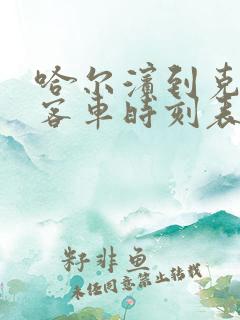 哈尔滨到克
客车时刻表
籽非鱼
未经同意禁止转载